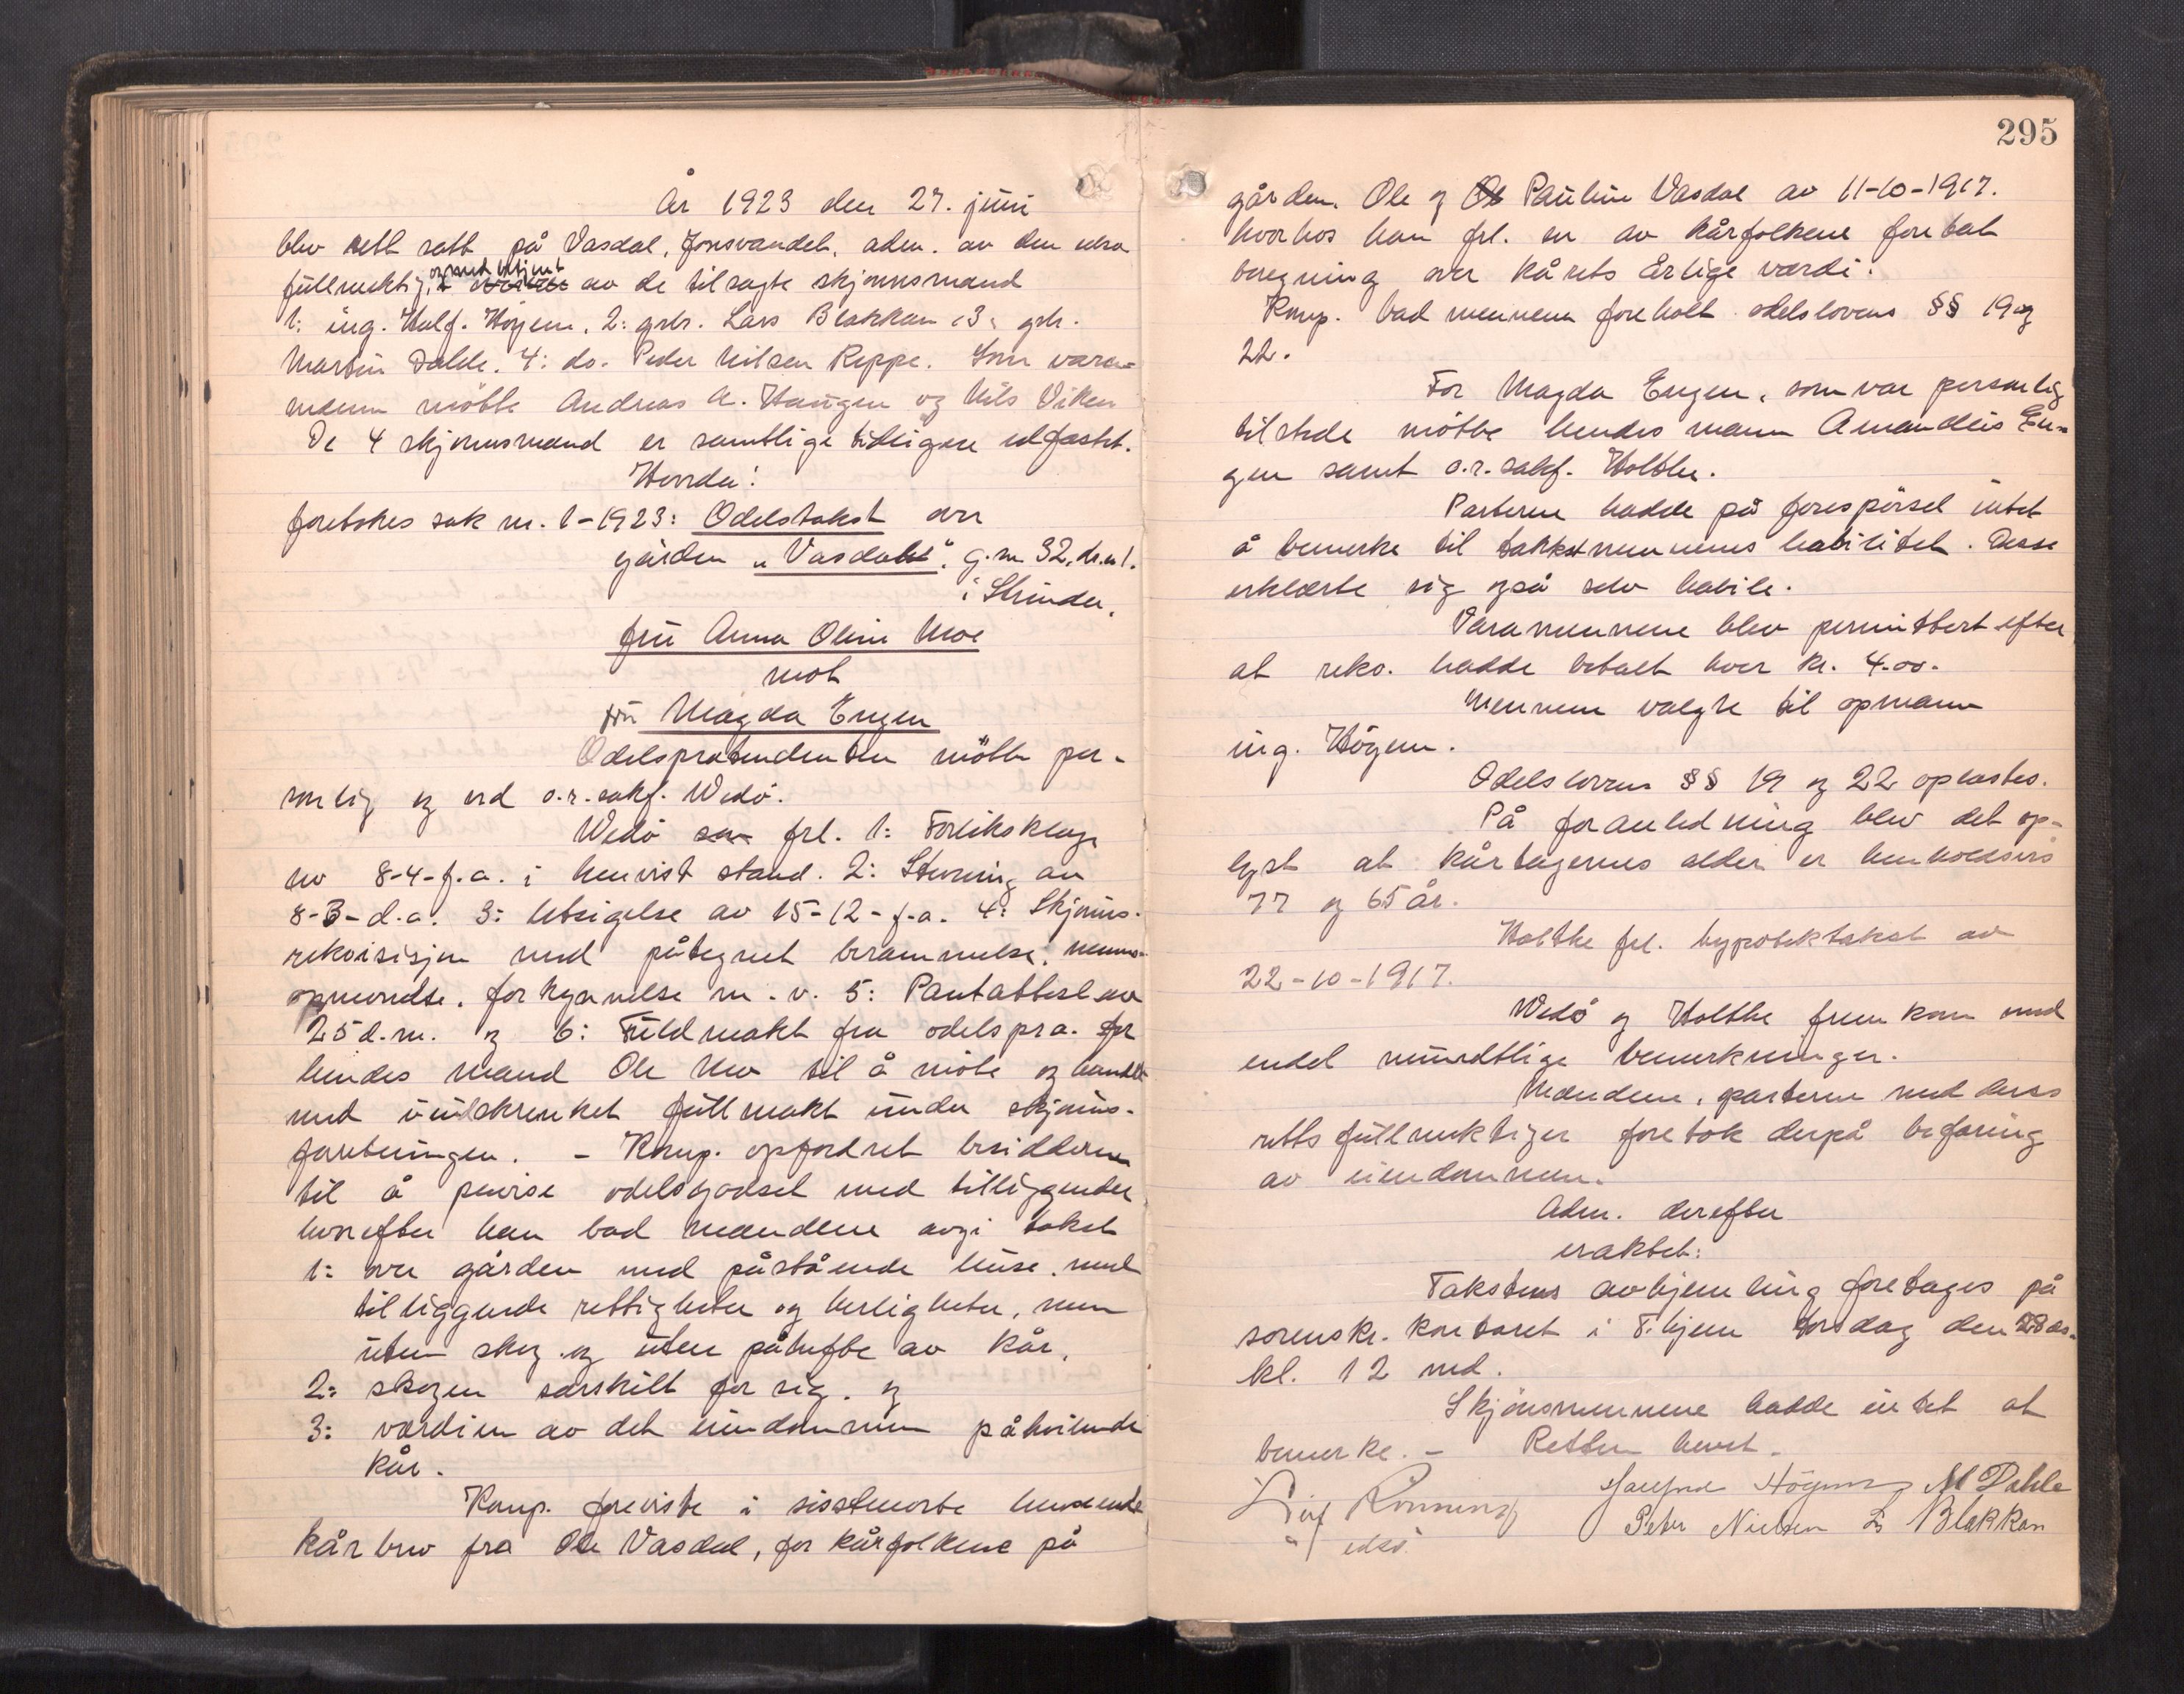 År 1923 den 27. juni
blev rett satt på Vasdal, Jonsvandet, adm. av den edsv
fullmektig, og med betjent av de tilsagte skjønnsmænd
1: ing. Half. Höyem, 2: grbr. Lars Blakkan, 3: grbr.
Martin Dahle. 4: do. Peder Nilsen Reppe. Som vara-
mænn mötte Andreas A. Haugen og Nils Viken
De 4 skjønnsmænd er samtlige tidligere edfæstet.
Hvorda:
foretokes sak nr. 1-1923: Odelstakst over
gården "Vasdal", g.nr 32, br.nr 1.
i Strinda.
fru Anna Oline Moe
mot
fru Magda Engen
Odelspretendenten mötte per-
sonlig og ved o.r.sakf. Wedö.
Wedö frl. 1: Forliksklage
av 8-4-f.a. i henvist stand. 2: Stevning av
8-3-d.a. 3: Utsigelse av 15-12-f.a. 4: Skjønns-
rekvisisjon med påtegnet berammelse, menns-
opnevnelse, forkynnelse m.v. 5: Pantattest av
25 d.m. og 6: Fuldmakt fra odelspræ. for
hendes mand Ole Moe til å möte og handle
med uinnskrenket fullmakt under skjønns-
forretningen. - Komp. opfordret besidderen
til å påvise odelsgodset med tilliggender
hvorefter han bad mændene avgi takst
1: over gården med påstående huse, med
tilliggende rettigheter og herligheter, men
uten skog og uten påheftte av kår,
2: skogen særskilt for sig. og
3: værdien av det eiendommen påhvilende
kår.
Komp. foreviste i sisstnevnte henseende
kårbrev fra Ole Vasdal, for kårfolkene på
295
gården, Ole og Pauline Vasdal av 11-10-1917.
hvorhos han frl. en av kårfolkene foretat
beregning over kårets årlige værdi.
Komp. bad mennene foreholt odelslovens §§ 19 og
22.
For Magda Engen, som var personlig
tilstede mötte hendes mann Amandus En-
gen samt o.r.sakf. Holthe.
Parterne hadde på forespörsel intet
å bemerke til takstmennenes habilitet. Disse
erklærte sig også selv habile.
Varamennene blev permittert efter
at rekv. hadde betalt hver kr. 4.00.
Mennene valgte til opmann
ing. Höyem.
Odelslovens §§ 19 og 22 oplæstes.
På foranledning blev det op-
lyst at kårtagernes alder er henholdsvis
77 og 65 år.
Holthe frl. hypotektakst av
22-10-1917.
Wedö og Holthe fremkom med
endel mundtlige bemerkninger.
Mændene, parterne med deres
rettsfullmektiger foretok derpå befaring
av eiendommen.
Adm. derefter
eraktet:
Takstens avhjemling foretages på
sorenskr. kontoret i T.hjem torsdag den 28 ds.
kl. 12 md.
Skjönsmennene hadde intet at
bemerke. - Retten hevet.
Leif Rönning Halfred Höyem M Dahle
edsv. Peder Nielsen L Blakkan